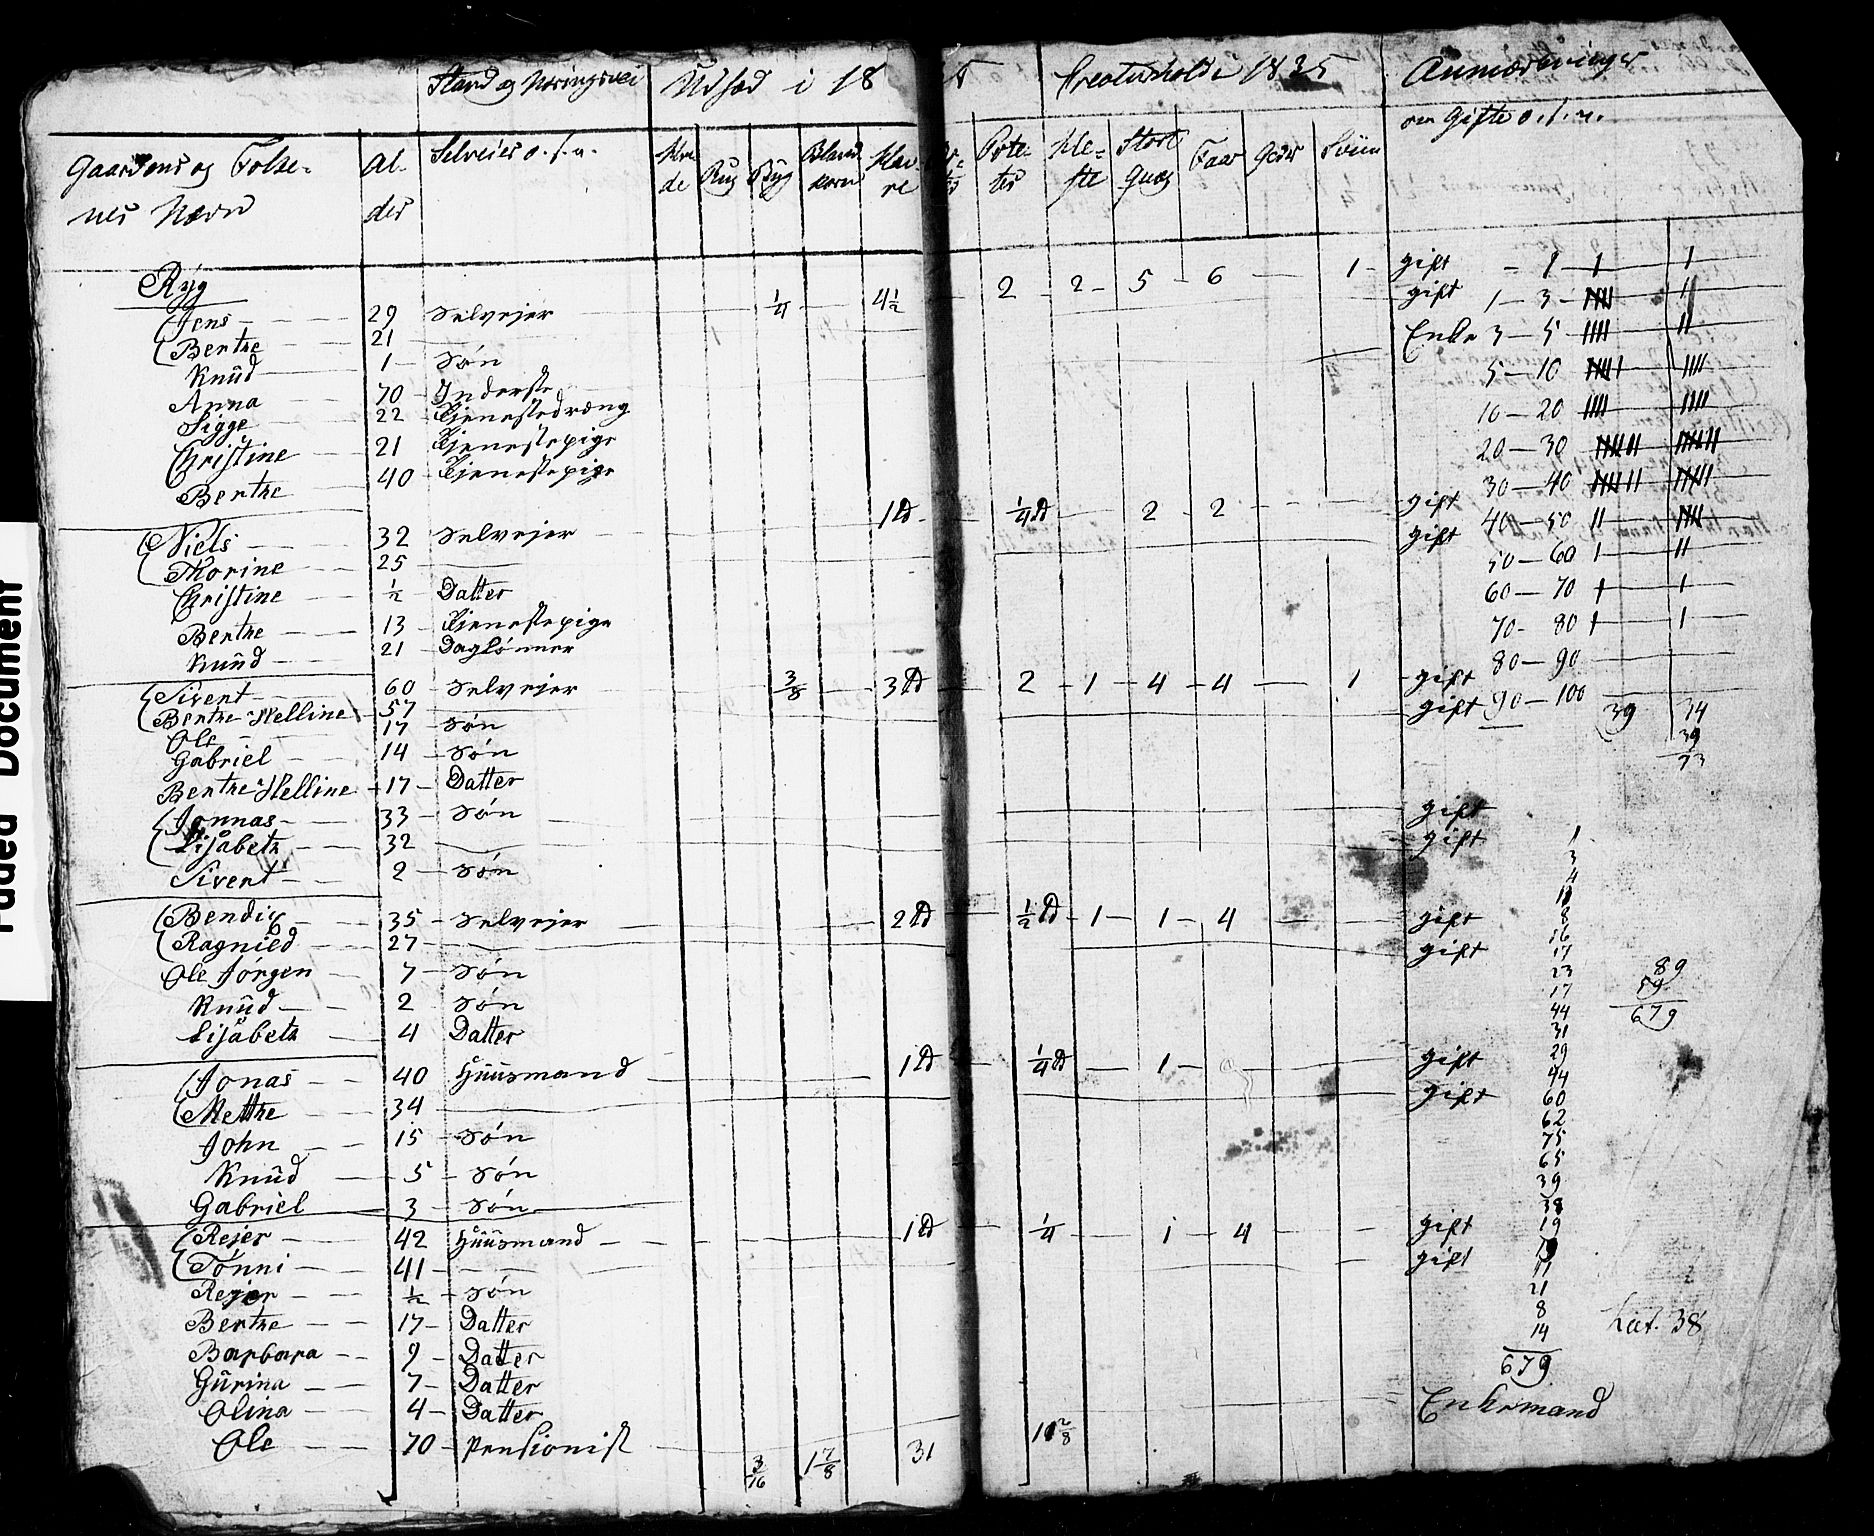 Faded Document
Stand og Næringsvei Udsæd i 18 Creaturhold i 1835 Anmærkninger
om Gifte o. s. v.
Gaardens og Folke- Al- Selveier o. s. v. Hve- Rug Byg Bland Hav- Pote- He- Stort Faar Geder Sviin
nes Navn der de korn re tes ste Qvæg
Ryg
Jens 29 Selvejer 1/4 4 1/2 2 2 5 6 1 gift
Berthe 21 gift
Knud 1 Søn
Anna 70 Inderste Enke
Sigge 22 Tjenestedræng
Christine 21 Tjenestepige
Berthe 40 Tjenestepige
Niels 32 Selvejer 1 1/4 2 2 gift
Thorine 25 gift
Christine 1/2 Datter
Berthe 13 Tjenestepige
Knud 21 Daglønner
Sivent 60 Selvejer 3/8 3 2 1 4 4 1 gift
Berthe Helline 57 gift
Ole 17 Søn
Gabriel 14 Søn
Berthe Helline 17 Datter
Jonnas 33 Søn gift
Lisabeth 32 gift
Sivent 2 Søn
Bendix 35 Selvejer 2 1/2 1 1 4 gift
Ragnied 27 gift
Ole Jörgen 7 Søn
Knud 2 Søn
Lisabeth 4 Datter
Jonas 40 Huusmand 1 1/4 1 gift
Metthe 34 gift
John 15 Søn
Knud 5 Søn
Gabriel 3 Søn
Rejer 42 Huusmand 1 1/4 1 4 gift
Tönni 41 gift
Rejer 1/2 Søn
Berthe 17 Datter
Barbara 9 Datter
Gurina 7 Datter
Olina 4 Datter
Ole 70 Pensionist Enkemand
3/16 1 7/8 31 10 2/8
1
1 - 3
3 - 5
5 - 10
10 - 20
20 - 30
30 - 40
40 - 50
50 - 60
60 - 70
70 - 80
80 - 90
90 - 100
39 34
39
73
1
3
4
8
16
17
23
17
44
31
29
44
60
62
75
65
39
38
19
11
21
8
14
679
89
59
679
Lat. 38